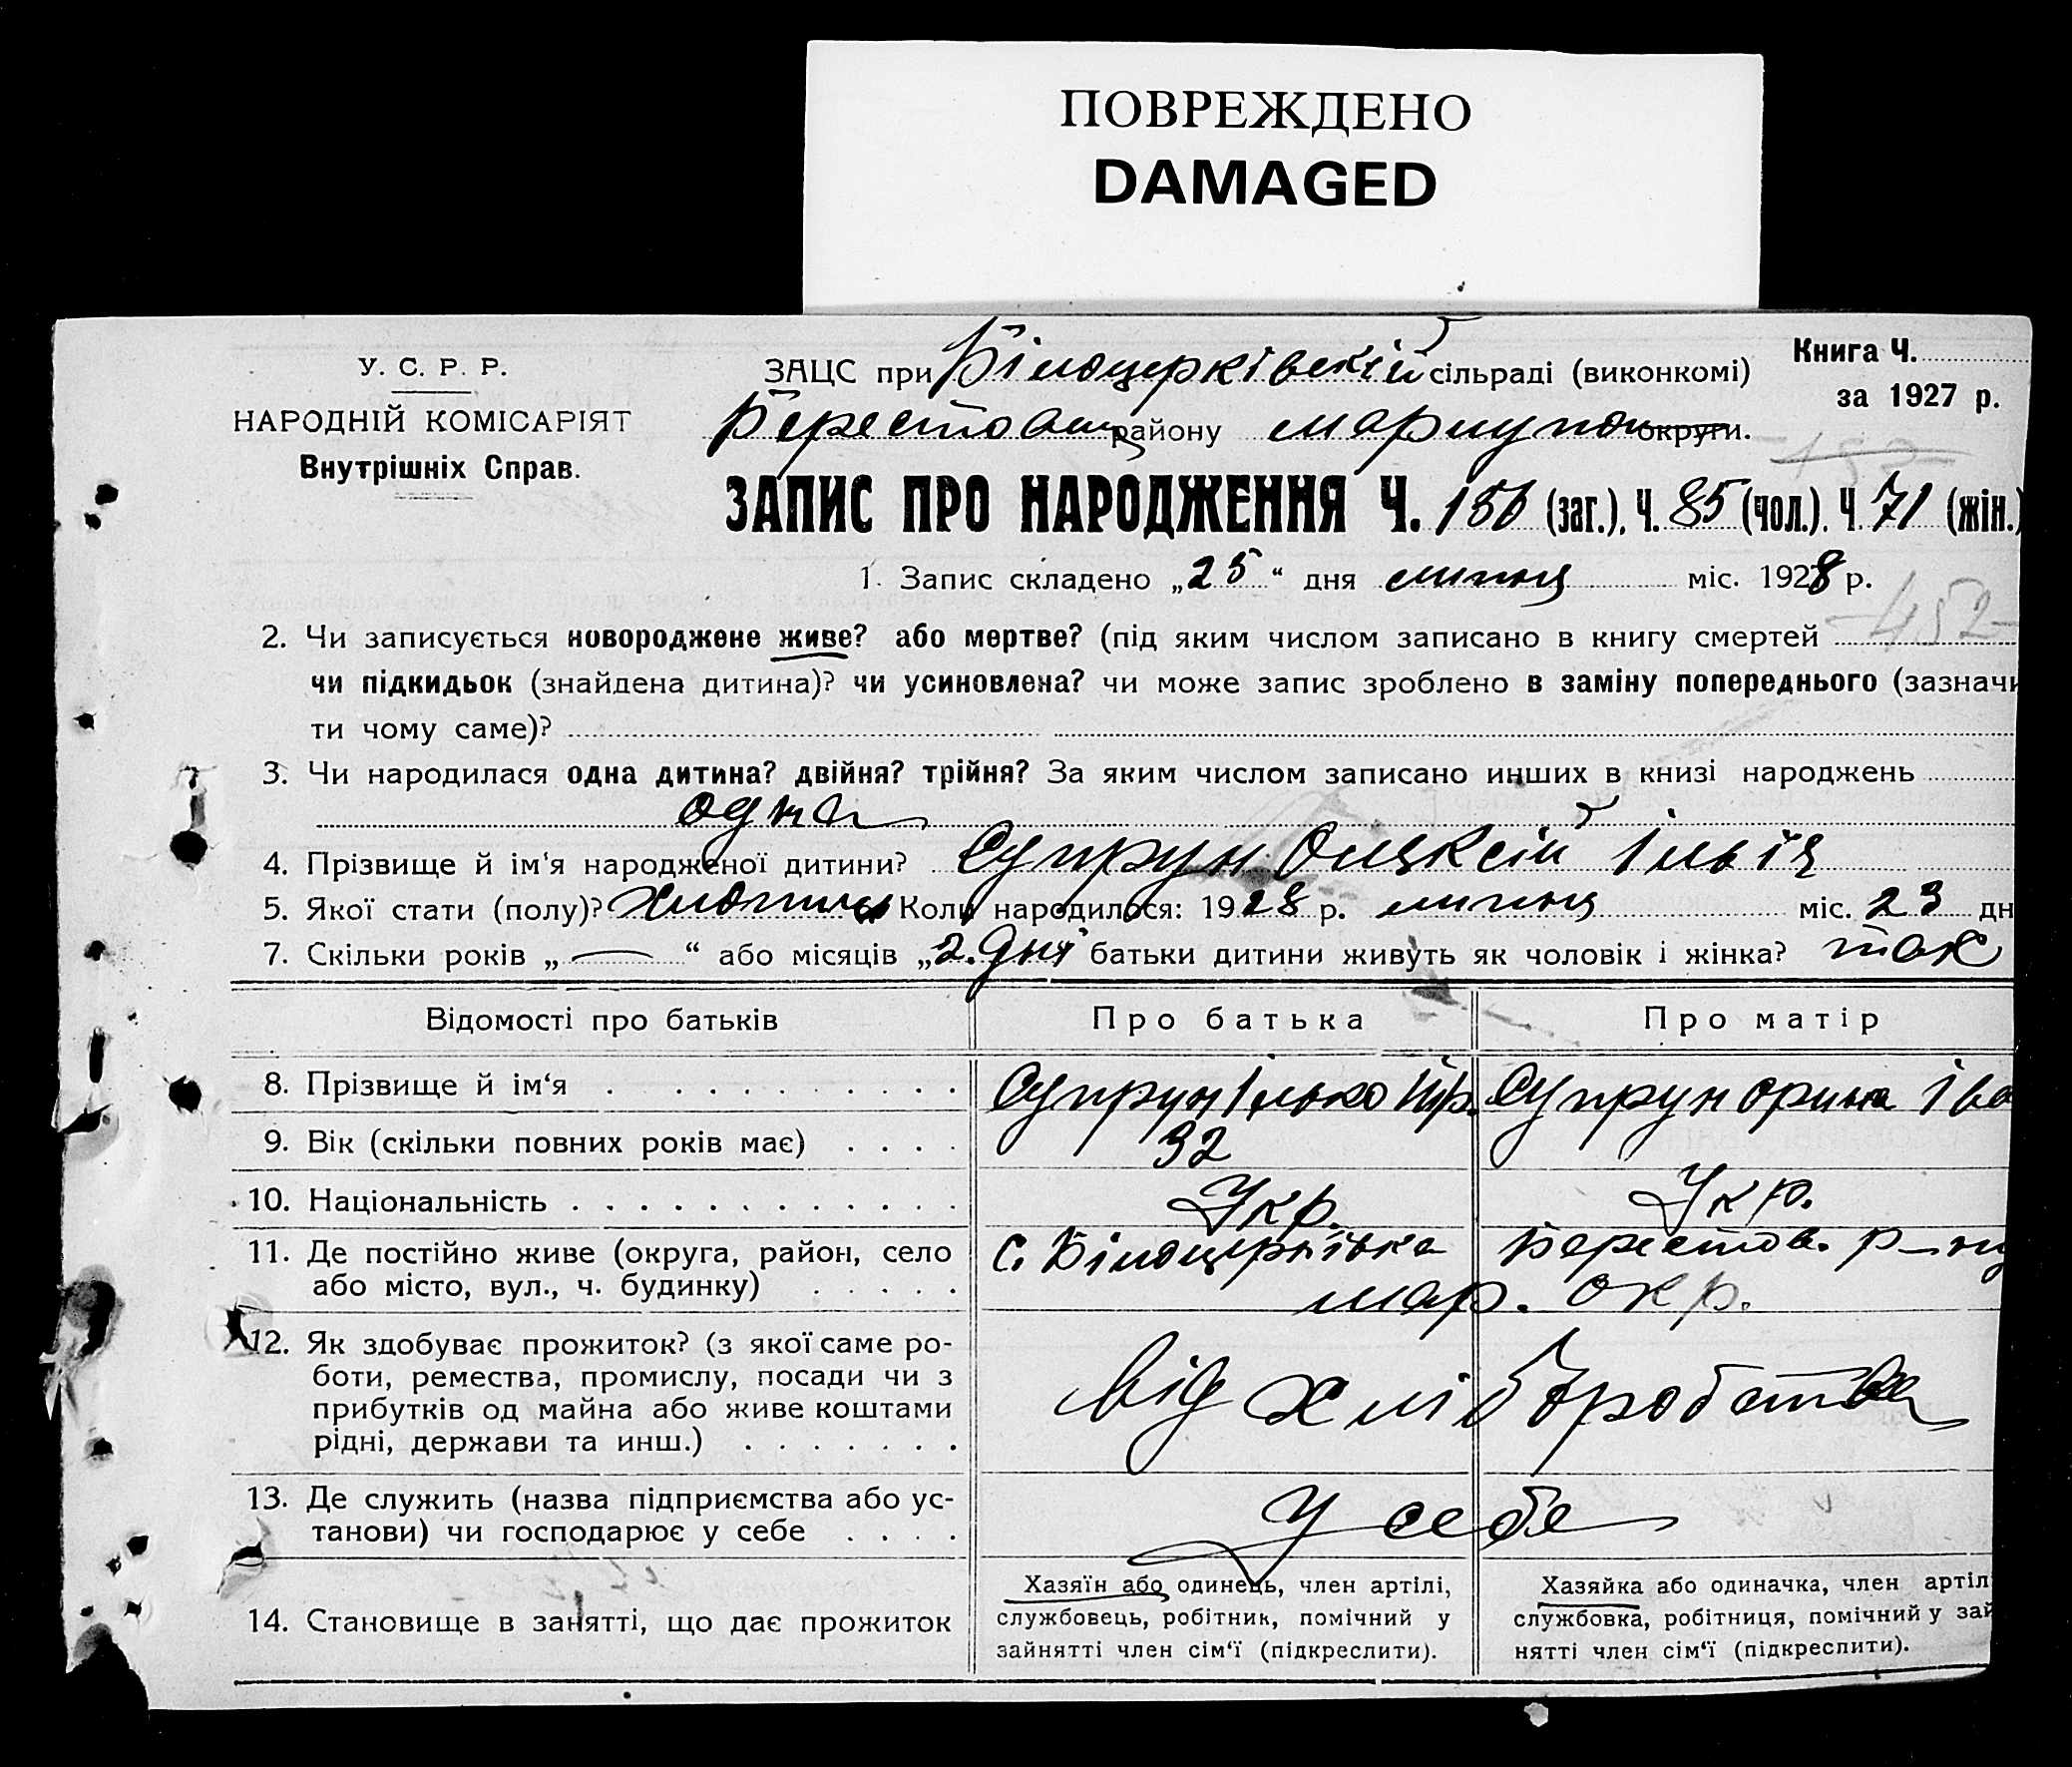 ПОВРЕЖДЕНО
DAMAGED
У. С. Р. Р.
НАРОДНІЙ КОМІСАРІЯТ
Внутрішніх Справ.
ЗАЦС при Білоцерківській сільраді (виконкомі)
Книга Ч.
за 1927 р.
Берестовец району маріупол округи.
ЗАПИС ПРО НАРОДЖЕННЯ Ч. 156 (заг.). Ч. 85 (чол.). Ч. 71 (жін.)
1. Запис складено „25“ дня липня міс. 1928 р.
2. Чи записується новороджене живе? або мертве? (під яким числом записано в книгу смертей 452
чи підкидьок (знайдена дитина)? чи усиновлена? чи може запис зроблено в заміну попереднього (зазначи
ти чому саме)?
3. Чи народилася одна дитина? двійня? трійня? За яким числом записано инших в книзі народжень
одна
4. Прізвище й ім‘я народженої дитини? Супрун Олексій Ілвія
5. Якої стати (полу)? Хлопець Коли народилося: 1928 р. липня міс. 23 дн
7. Скільки років „—“ або місяців „2. дні“ батьки дитини живуть як чоловік і жінка? так
Відомості про батьків
Про батька
Про матір
8. Прізвище й ім‘я
Супрун Ілько
Супрун Орина Іва
9. Вік (скільки повних років має)
32
10. Національність
Укр.
Укр.
11. Де постійно живе (округа, район, село
або місто, вул., ч. будинку)
с. Білоцерківка Берестов. р-ну
мар. окр.
12. Як здобуває прожиток? (з якої саме ро-
боти, ремества, промислу, посади чи з
прибутків од майна або живе коштами
рідні, держави та инш.)
від хліборобства
13. Де служить (назва підприємства або ус-
танови) чи господарює у себе
У себе
14. Становище в занятті, що дає прожиток
Хазяїн або одинець, член артілі,
службовець, робітник, помічний у
зайнятті член сім‘ї (підкреслити).
Хазяйка або одиначка, член артіл
службовка, робітниця, помічний у зай
нятті член сім‘ї (підкреслити).